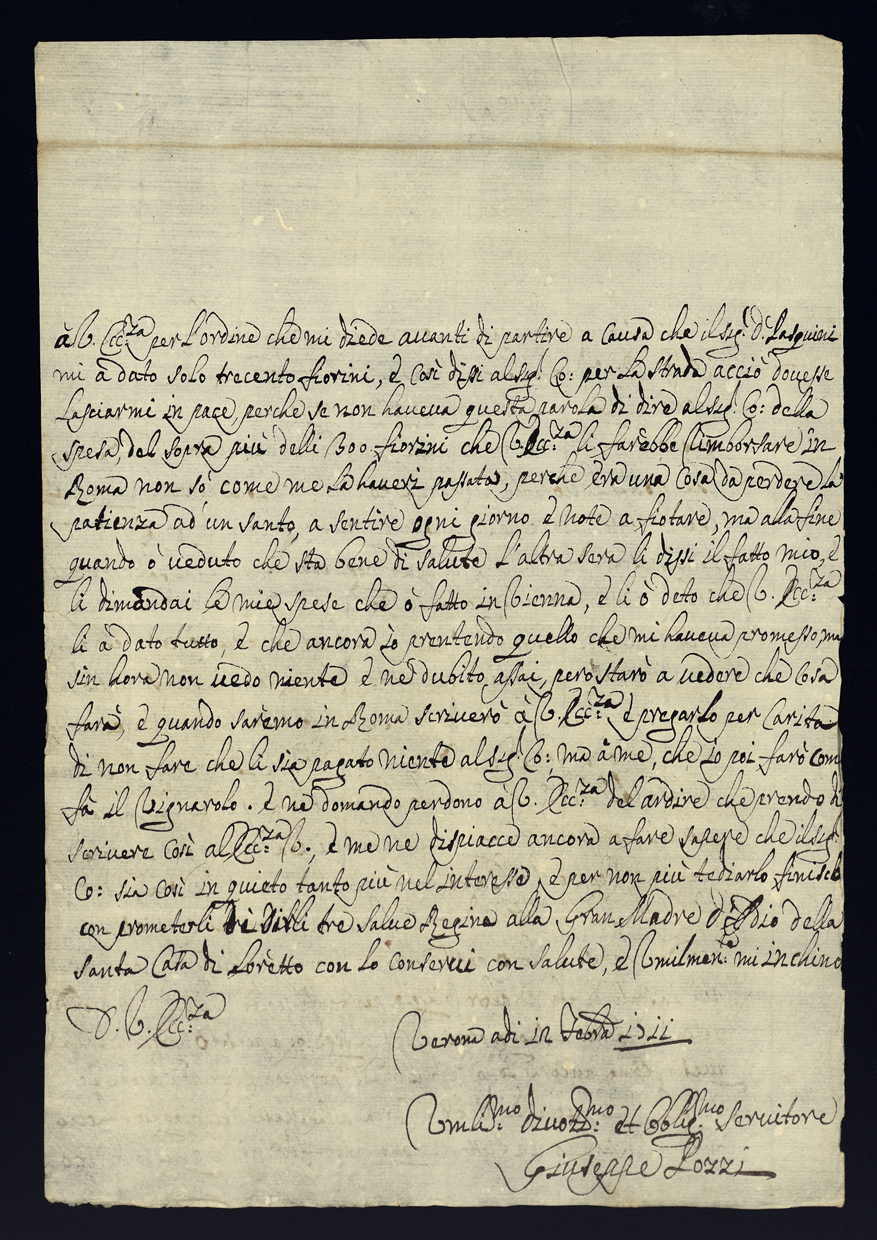 à V. Ecc:za per L'ordine che mi diede auanti di partire a causa che il sig: D: Pasquini
mi à dato solo trecento fiorini, è Così dissi al sig: Co: per La strada acciò douesse
Lasciarmi in pace, perche se non haueua questa parola di dire al sig: Co: della
spesa, del sopra più delli 300 fiorini che V. Ecc:za li farebbe rimborsare in
Roma non sò come me La hauerì passata, perche èra una Cosa da perdere La
patienza ad'un santo, a sentire ogni giorno è note a fiotare, ma alla fine
quando ò ueduto che sta bene di salute L'altra sera li dissi il fatto mio, è
li dimandai le mie spese che ò fatto in Vienna, è li ò deto che V. Ecc:za
li à dato tutto, è che ancora io prentendo quello che mi haueua promesso, ma
sin hora non uedo niente è nè dubito assai, però starò a uedere che Cosa
farà, è quando sarèmo in Roma scriuerò à V. Ecc:za è pregarlo per Carita
di non fare che li sia pagato niente al sig: Co: ma à me, che io poi farò com
fà il Vignarolo. è nè domando perdono à V. Ecc:za del ardire che prendo di
scriuere Così al Ecc:za V., è me ne dispiacce ancora a fare sapere che il sig:
Co: sia Così in quieto tanto più nel interesse, è per non più tediarlo finisco
con prometerli tre Salue Regine alla Gran Madre d'Idio della
santa Casa di Lorètto con lo Conserui con salute, è Vmilmen:te mi inchino
D. V. Ecc:za
Verona adi in Febra 1711
Vmili:mo diuotiss:mo et Obblig:mo seruitore
Giuseppe Pozzi